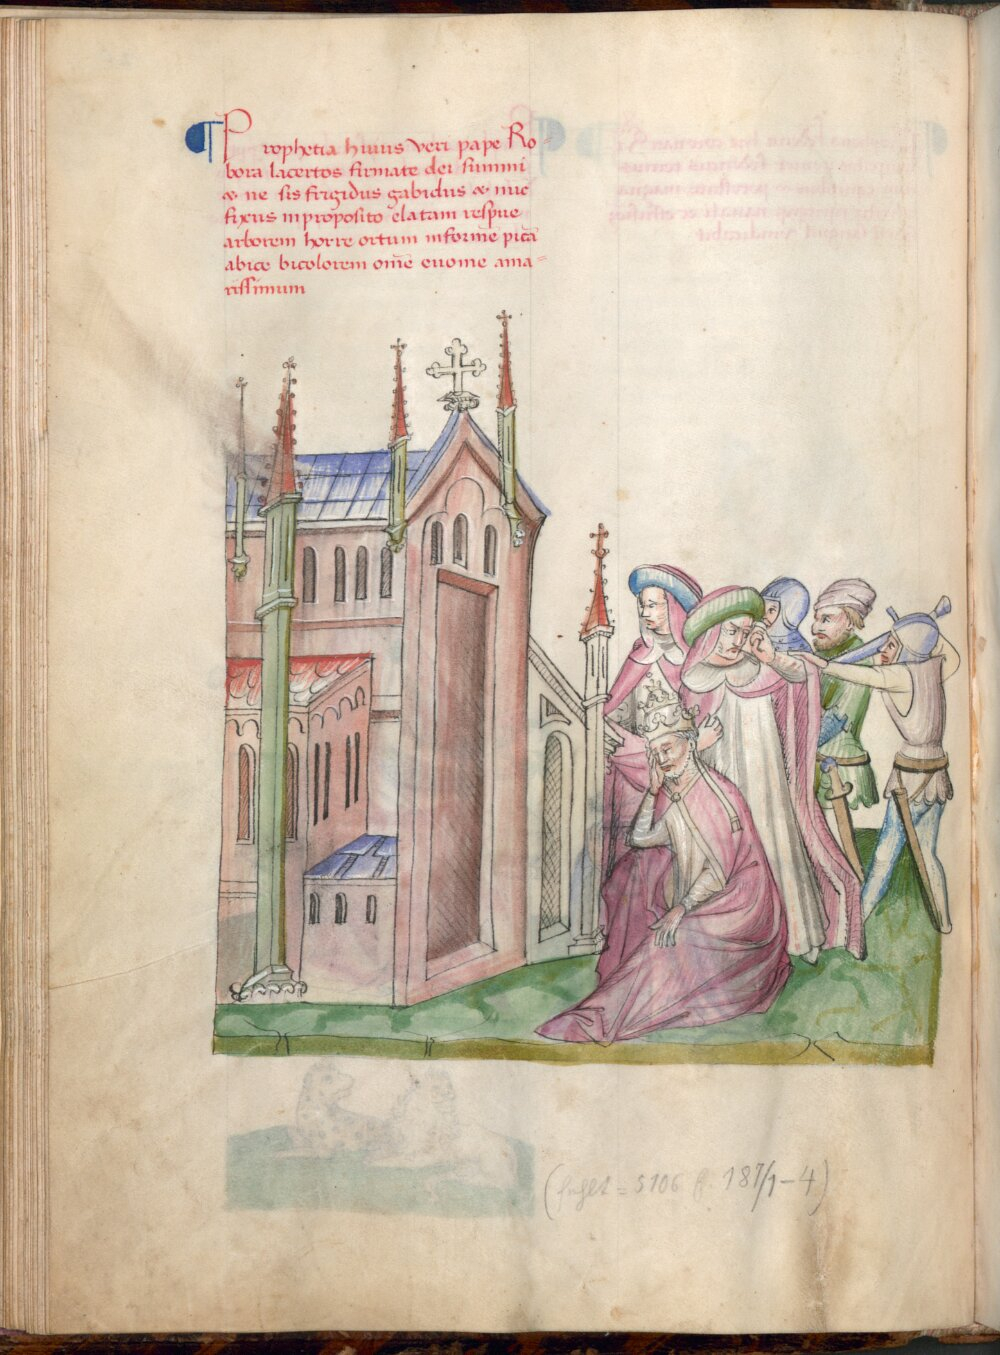 Prophetia huius veri pape Ro-
bora lacertos firmate dei summi
& ne sis frigidus gabidus & nuc
fixus in proposito elatam respue
arborem horre ortum informe pica
abice bicolorem ome euome ama-
rissimum
= 5106 f. 187/1-4)